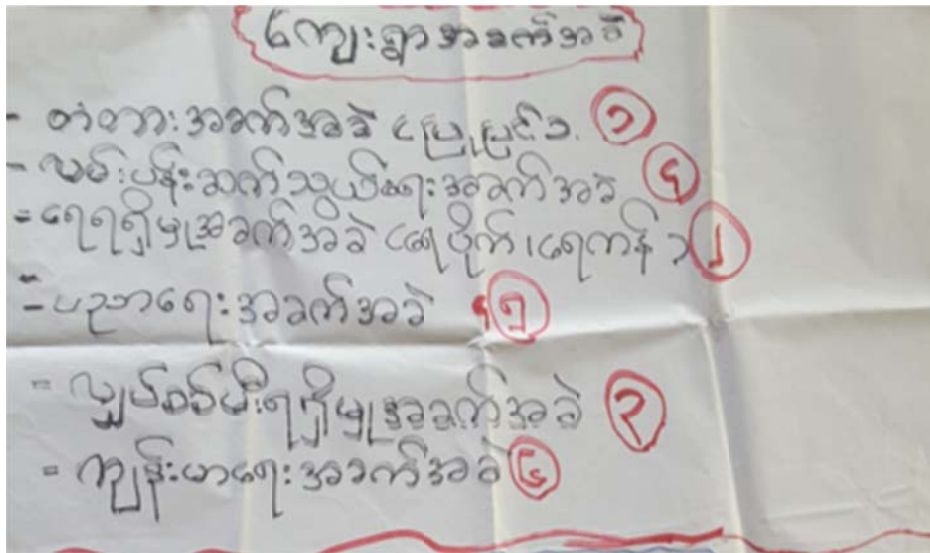 ကျေးရွာအခက်အခဲ
- တံတားအခက်အခဲ (ပြုပြင်) ၁
- လမ်းပန်းဆက်သွယ်ရေးအခက်အခဲ ၄
= ရေရရှိမှုအခက်အခဲ (ရေပိုက်၊ ရေကန်)
= ပညာရေးအခက်အခဲ ၅
= လျှပ်စစ်မီးရရှိမှုအခက်အခဲ ၃
= ကျန်းမာရေးအခက်အခဲ ၆